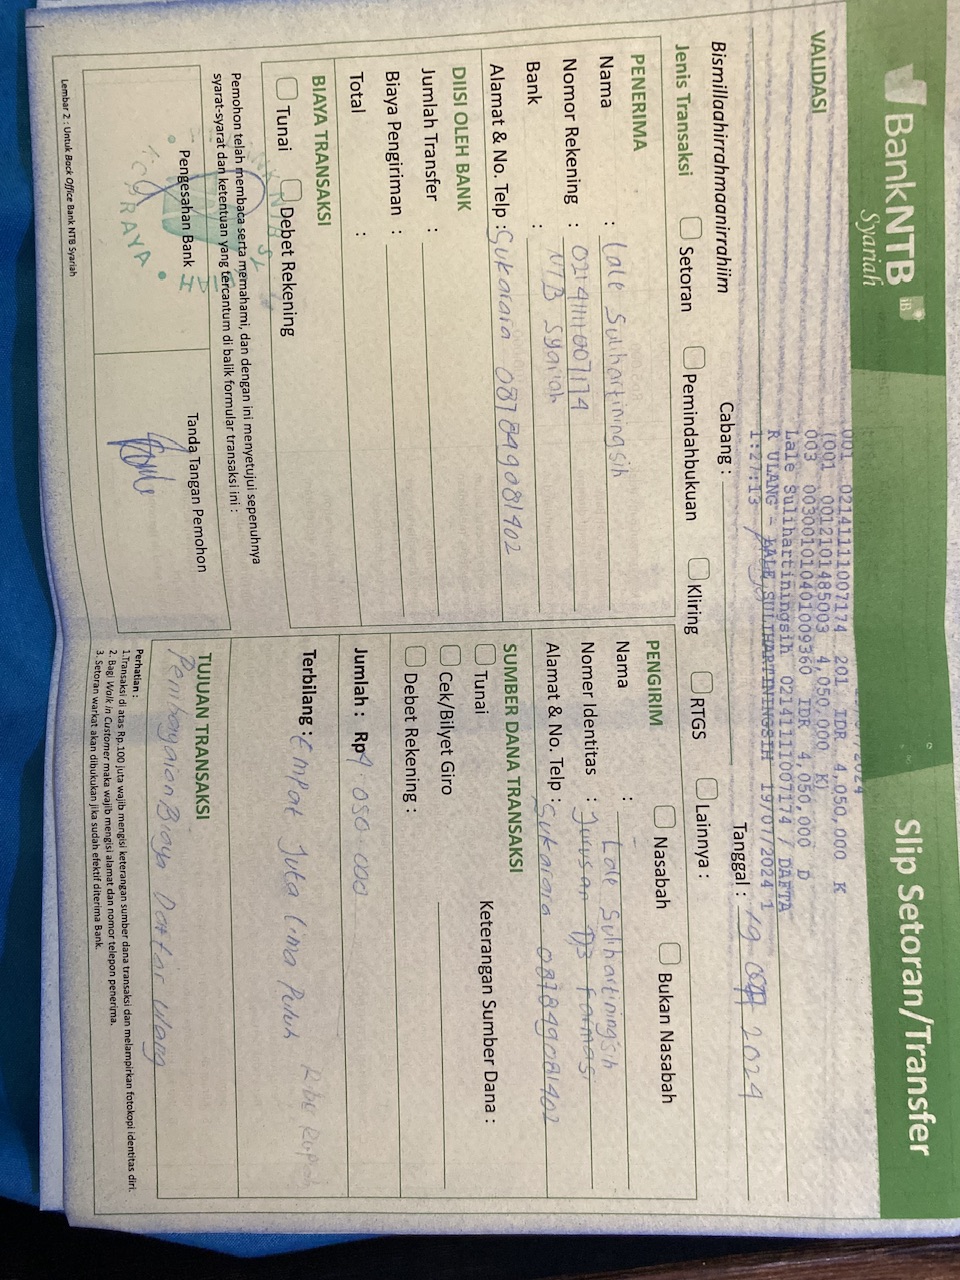 BankNTB
Syariah
Slip Setoran/Transfer
VALIDASI
001 02141111007174 201 IDR 4,050,000 K
(001 0012101485003 4,050,000 K)
003 0030010104001009360 IDR 4,050,000 D
Lale Sulihartiningsih 02141111007174 / DAFTA
R ULANG - LALE SULIHARTININGSIH 19/07/2024 1
1:27:13
Bismillaahirrahmaanirrahiim
Cabang :
Tanggal : 19 2024
Jenis Transaksi
Setoran
Pemindahbukuan
Kliring
RTGS
Lainnya :
PENERIMA
Nama : Lale Sulihartiningsih
Nomor Rekening : 02141111007174
Bank : NTB Syariah
Alamat & No. Telp : Sukarara 087849081402
DIISI OLEH BANK
Jumlah Transfer :
Biaya Pengiriman :
Total :
BIAYA TRANSAKSI
Tunai
Debet Rekening
Pemohon telah membaca serta memahami, dan dengan ini menyetujui sepenuhnya
syarat-syarat dan ketentuan yang tercantum di balik formular transaksi ini :
Pengesahan Bank
Tanda Tangan Pemohon
RAYA
Lembar 2 : Untuk Back Office Bank NTB Syariah
PENGIRIM
Nasabah
Bukan Nasabah
Nama : Lale Sulihartiningsih
Nomer Identitas : Jurusan D3 farmasi
Alamat & No. Telp : Sukarara 087849081402
SUMBER DANA TRANSAKSI
Tunai
Keterangan Sumber Dana :
Cek/Bilyet Giro
Debet Rekening :
Jumlah : Rp 4.050.000
Terbilang : Empat Juta Lima Puluh
Ribu Rupiah
TUJUAN TRANSAKSI
Pembayaran Biaya Daftar Ulang
Perhatian :
1.Transaksi di atas Rp.100 juta wajib mengisi keterangan sumber dana transaksi dan melampirkan fotokopi identitas diri.
2. Bagi Walk in Customer maka wajib mengisi alamat dan nomor telepon penerima.
3. Setoran warkat akan dibukukan jika sudah efektif diterima Bank.